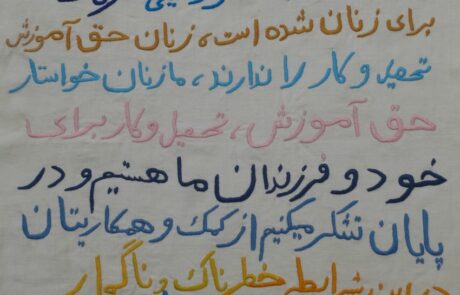 برای زنان شده است، زنان حق آموزش
تحصیل و کار را ندارند، ما زنان خواستار
حق آموزش، تحصیل و کار برای
خود و فرزندان ما هستیم و در
پایان تشکر میکنیم از کمک و همکاریتان
در این شرایط خطرناک و ناگوار